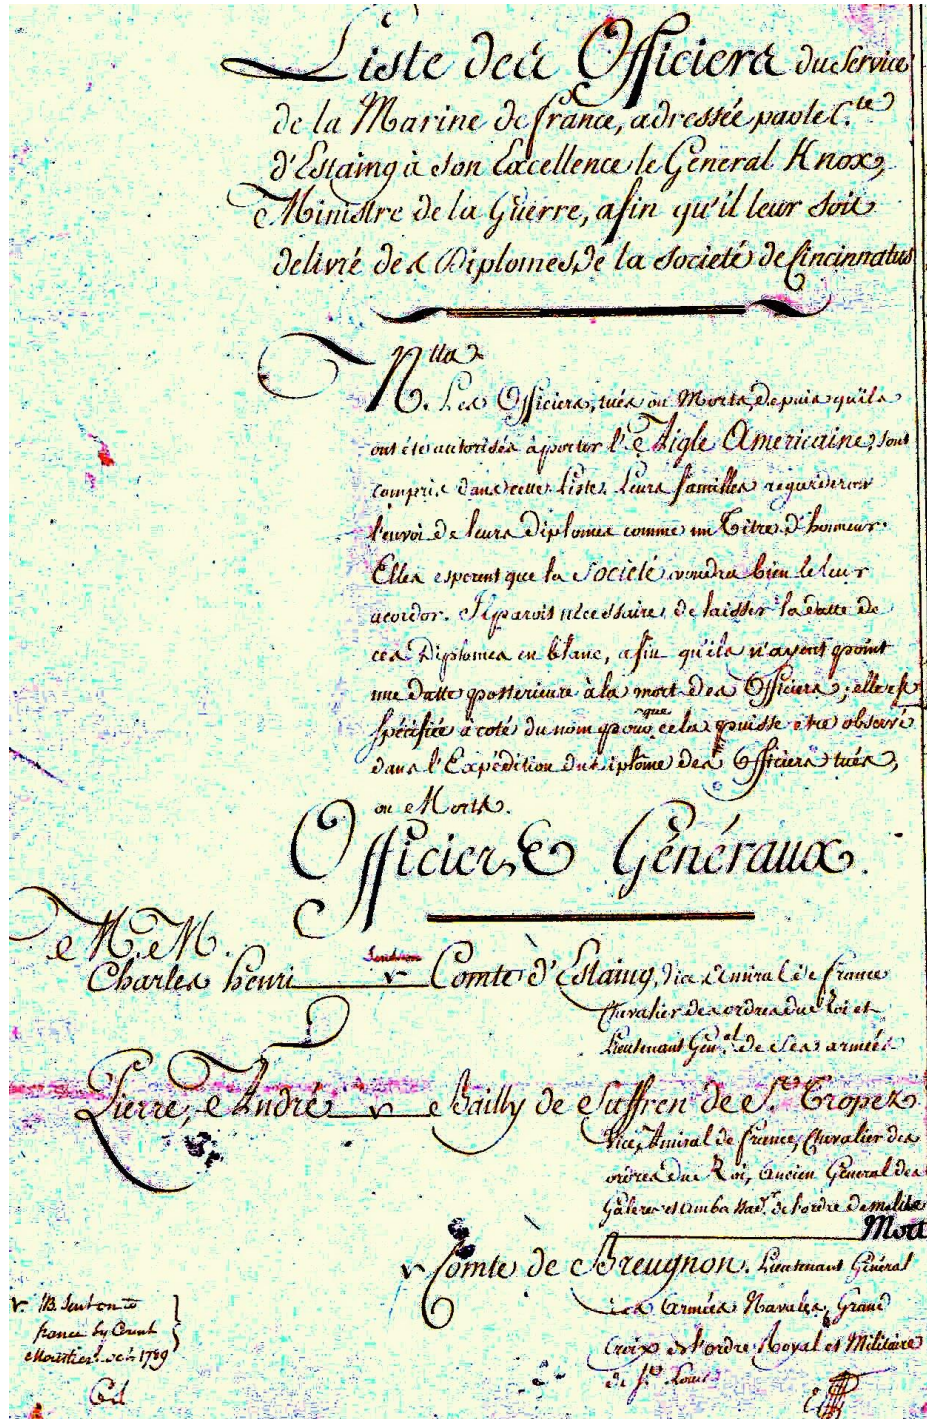 Liste des Officiers du Service
de la Marine de france, adressée par le C.te
d'Estaing à son Excellence le Général Knox,
Ministre de la Guerre, afin qu'il leur soit
delivré des Diplomes de la Societé de Cincinnatus
N. tta
Les Officiers, tués ou Morts, depuis qu'ils
ont été autorisés à porter l'Aigle Americaine, sont
compris dans cette Liste. Leurs familles regarderont
l'envoi de leurs Diplomes comme un Titre d'honneur.
Elles esperent que la Societé voudra bien le leur
acorder. Il paroit nécessaire de laisser la datte de
ces Diplomes en blanc, afin qu'ils n'ayent point
une datte posterieure à la mort des Officiers; elle est
spécifiée à coté du nom pour que cela puisse etre observé
dans l'Expédition du Diplome des Officiers tués,
ou Morts.
Officiers Généraux.
M. M.
Charles henri v Comte d'Estaing, Vice Amiral de france
Chevalier des ordres du Roi et
Lieutenant Gén.al de ses armées
Pierre, André v Bailly de Suffren de S.t Tropez
Vice Amiral de france, Chevalier des
ordres du Roi, ancien Général des
Galeres et Ambassad.r de l'ordre de malthe
Mort
v Comte de Breugnon. Lieutenant Général
des Armées Navales, Grand
Croix de l'ordre Royal et Militaire
de S.t Louis
v NB. Sent on to
france by Count
Moustier 1789